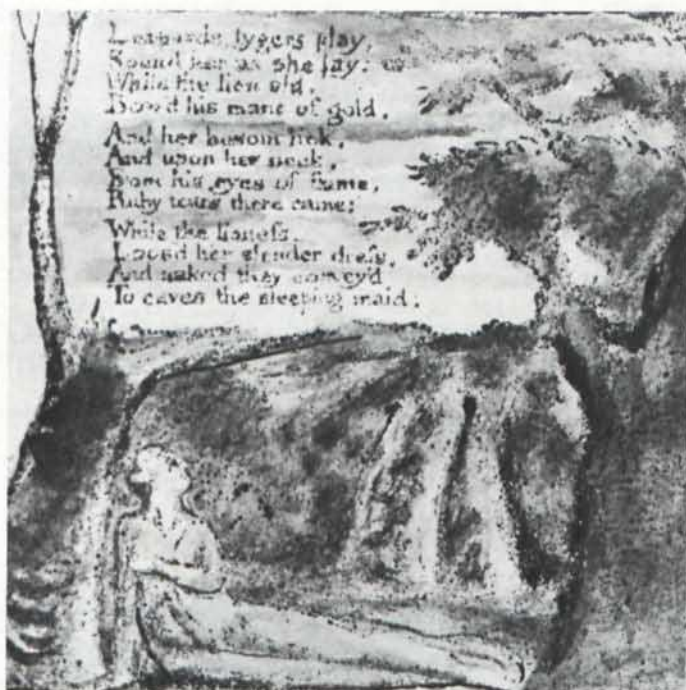 Leopards, tygers play,
Round her as she lay;
While the lion old,
Bow'd his mane of gold,
And her bosom lick,
And upon her neck,
From his eyes of flame,
Ruby tears there came;
While the lioneſs,
Loos'd her slender dreſs,
And naked they convey'd
To caves the sleeping maid.